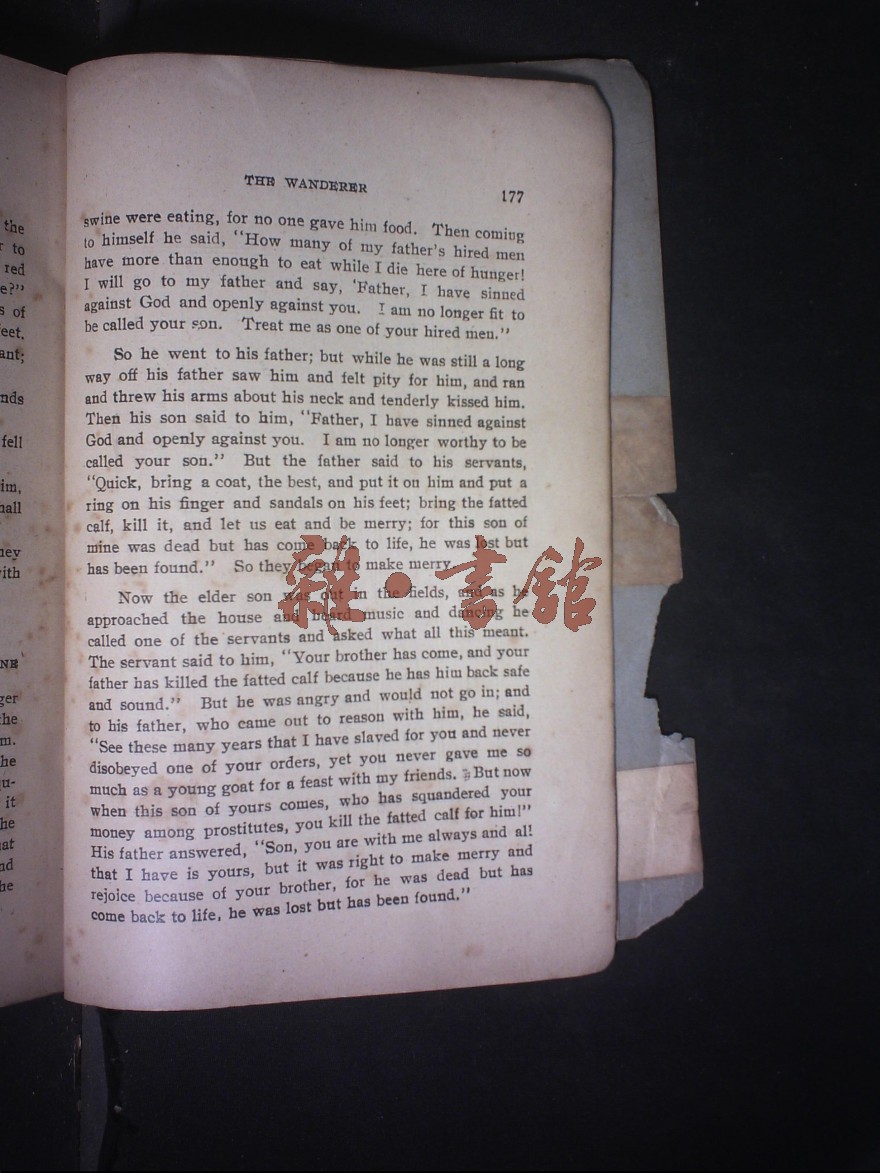 the
r to
red
e?"
s of
eet.
ant;
nds
fell
im,
hall
hey
ith
NE
ger
the
m.
he
u-
it
he
at
nd
he
THE WANDERER
177
swine were eating, for no one gave him food. Then coming
to himself he said, "How many of my father's hired men
have more than enough to eat while I die here of hunger!
I will go to my father and say, 'Father, I have sinned
against God and openly against you. I am no longer fit to
be called your son. Treat me as one of your hired men."
So he went to his father; but while he was still a long
way off his father saw him and felt pity for him, and ran
and threw his arms about his neck and tenderly kissed him.
Then his son said to him, "Father, I have sinned against
God and openly against you. I am no longer worthy to be
called your son." But the father said to his servants,
"Quick, bring a coat, the best, and put it on him and put a
ring on his finger and sandals on his feet; bring the fatted
calf, kill it, and let us eat and be merry; for this son of
mine was dead but has come back to life, he was lost but
has been found." So they began to make merry.
Now the elder son was out in the fields, and as he
approached the house and heard music and dancing he
called one of the servants and asked what all this meant.
The servant said to him, "Your brother has come, and your
father has killed the fatted calf because he has him back safe
and sound." But he was angry and would not go in; and
to his father, who came out to reason with him, he said,
"See these many years that I have slaved for you and never
disobeyed one of your orders, yet you never gave me so
much as a young goat for a feast with my friends. But now
when this son of yours comes, who has squandered your
money among prostitutes, you kill the fatted calf for him!"
His father answered, "Son, you are with me always and all
that I have is yours, but it was right to make merry and
rejoice because of your brother, for he was dead but has
come back to life, he was lost but has been found."
雜·書館